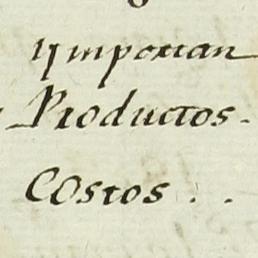 ymportan
Productos.
Costos . .